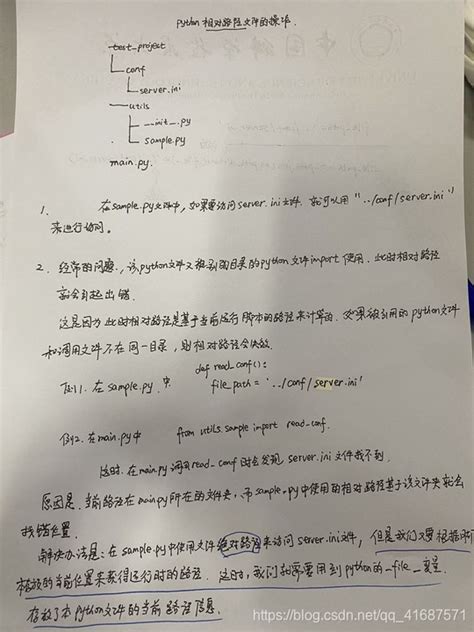 Python 相对路径文件的操作.
test_project
conf
server.ini
utils
__init__.py
sample.py
main.py.
1. 在sample.py文件中,如果要访问server.ini文件.就可以用 "../conf/server.ini"
来进行访问。
2. 经常的问题.,该python文件又被别的目录的python文件import使用.此时相对路径
就会引起出错.
这是因为此时相对路径是基于当前运行脚本的路径来计算的.如果被引用的python文件
和调用文件不在同一目录,则相对路径会失效.
例1. 在sample.py 中 def read_conf():
file_path = '../conf/server.ini'
例2. 在main.py中 from utils.sample import read_conf.
这时.在main.py 调用read_conf时会发现 server.ini 文件找不到.
原因是.当前路径在main.py所在的文件夹,而sample.py中使用的相对路径基于该文件夹就会
找错位置.
解决办法是:在sample.py中使用文件绝对路径来访问server.ini文件,但是我们又要根据
存放的当前位置来获得运行时的路径.这时,我们就需要用到python的_file_变量
存放了本python文件的当前路径信息.
https://blog.csdn.net/qq_41687571